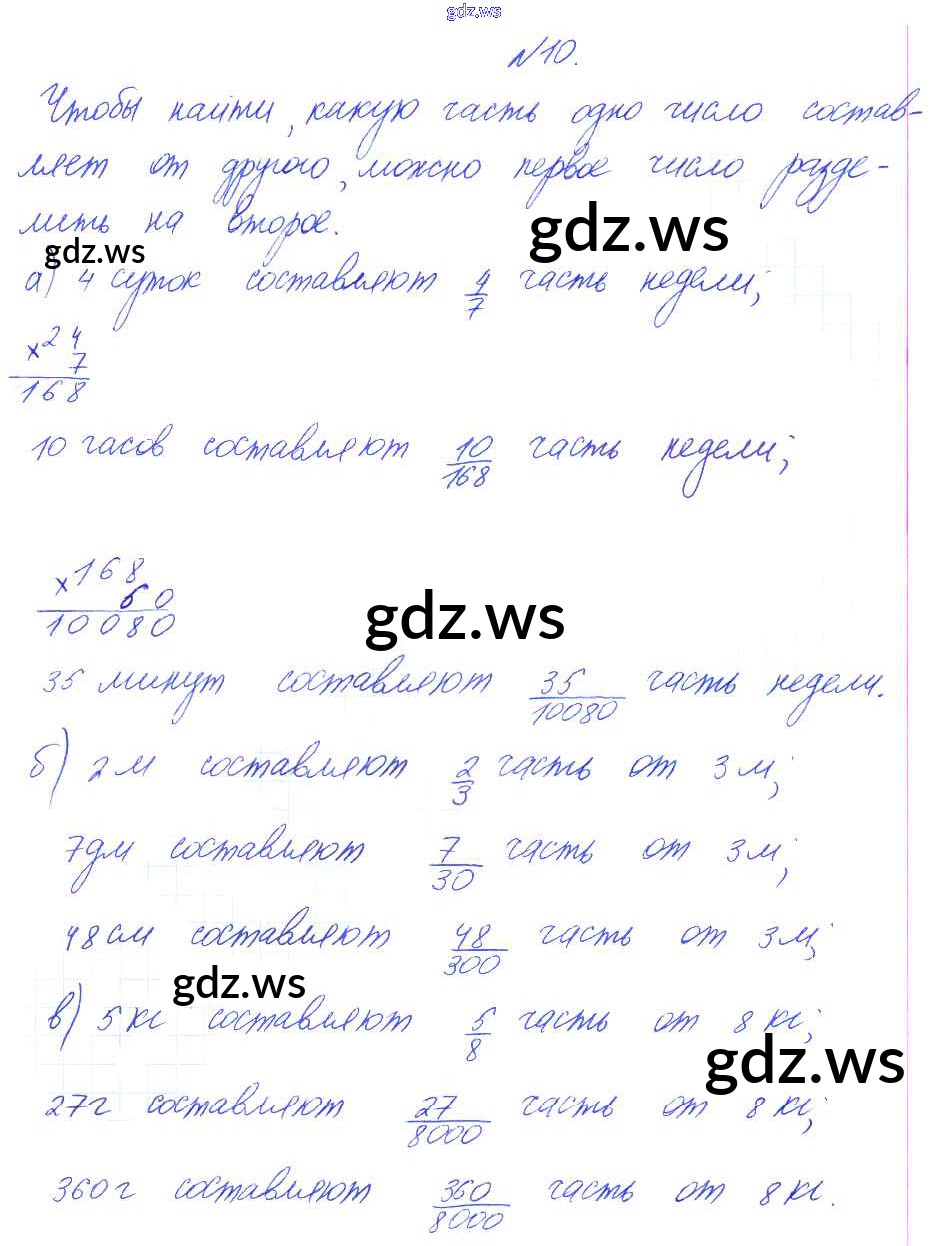 gdz.ws
№10.
Чтобы найти, какую часть одно число состав-
ляет от другого, можно первое число разде-
лить на второе.
gdz.ws
gdz.ws
а) 4 суток составляют 4/7 часть недели;
× 24
7
168
10 часов составляют 10/168 часть недели;
× 168
60
10080
gdz.ws
35 минут составляют 35/10080 часть недели.
б) 2 м составляют 2/3 часть от 3 м;
7 дм составляют 7/30 часть от 3 м;
48 см составляют 48/300 часть от 3 м;
gdz.ws
в) 5 кг составляют 5/8 часть от 8 кг;
gdz.ws
27 г составляют 27/8000 часть от 8 кг;
360 г составляют 360/8000 часть от 8 кг.